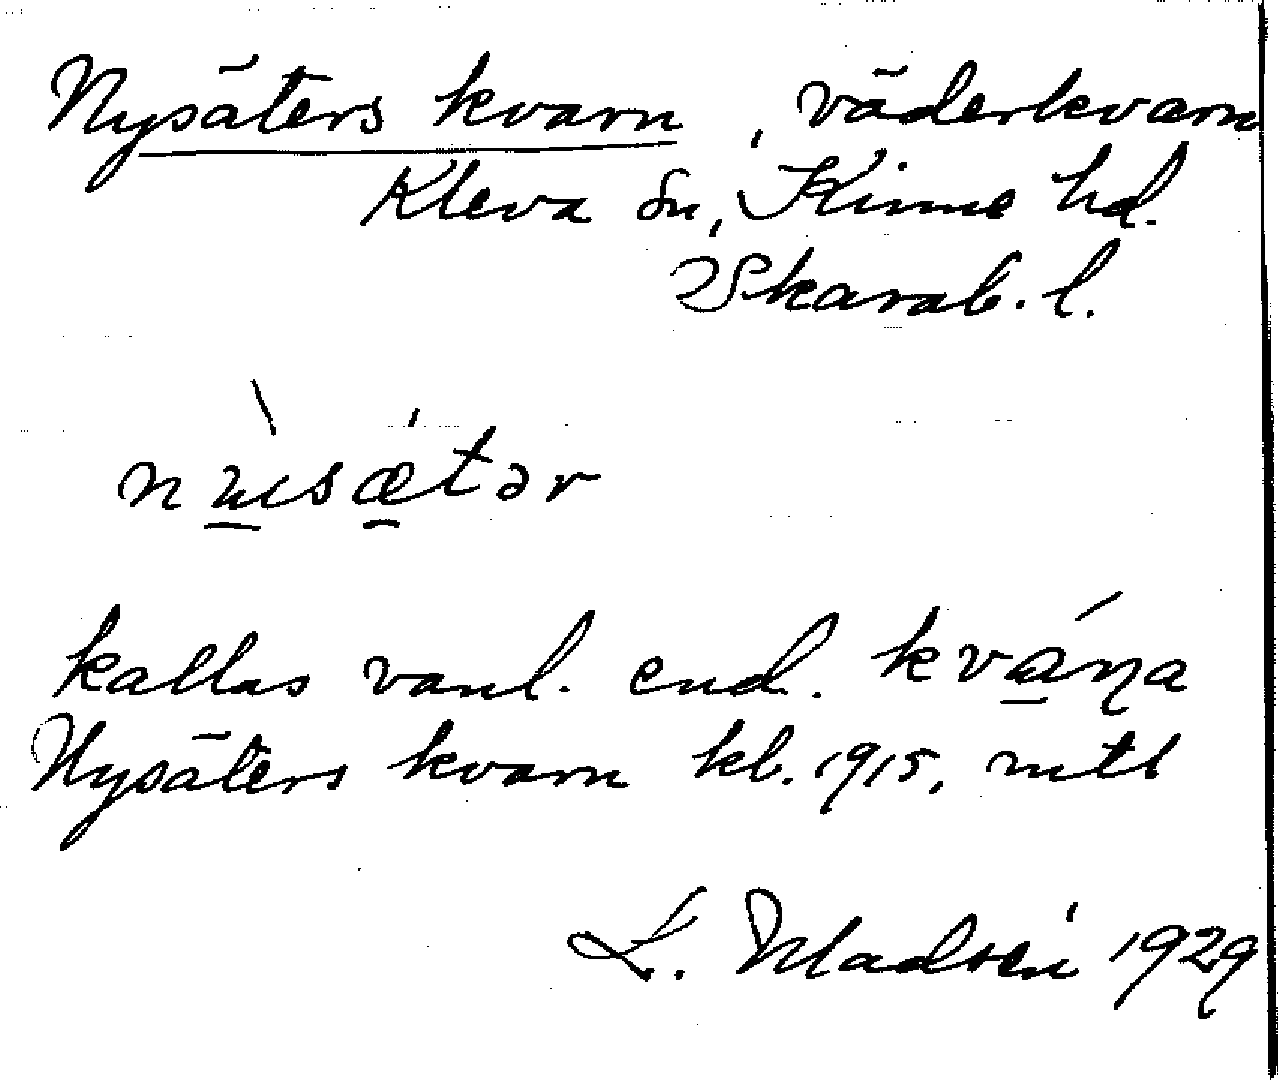 Nysäters kvarn, väderkvarn
Kleva sn, Kinne hd.
Skarab. l.
nùsǽtər
kallas vanl. end. kváɳa
Nysäters kvarn kb. 1915, mtl
L. Madsén 1929